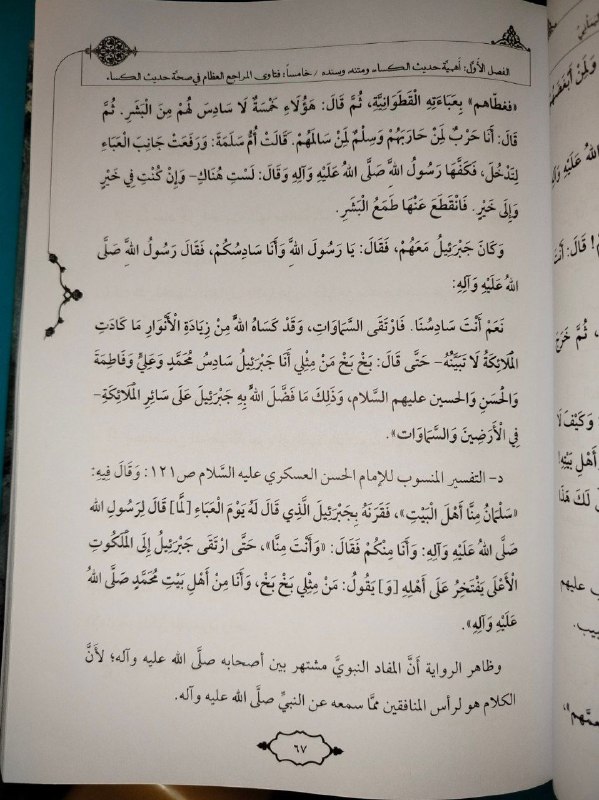 الفصل الأوّل: أهميّة حديث الكساء ومتنه وسنده / خامساً: فتاوى المراجع العظام في صحّة حديث الكساء
«فغطّاهم» بِعَبَاءَتِهِ القَطَوَانِيَّةِ، ثُمَّ قَالَ: هَؤُلَاءِ خَمْسَةٌ لَا سَادِسَ لَهُمْ مِنَ الْبَشَرِ. ثُمَّ
قَالَ: أَنَا حَرْبٌ لِمَنْ حَارَبَهُمْ وَسِلْمٌ لِمَنْ سَالَمَهُمْ. قَالَتْ أُمُّ سَلَمَةَ: وَرَفَعَتْ جَانِبَ الْعَبَاءِ
لِتَدْخُلَ، فَكَفَّهَا رَسُولُ اللهِ صَلَّى اللهُ عَلَيْهِ وَآلِهِ وَقَالَ: لَسْتِ هُنَاكِ- وَإِنْ كُنْتِ فِي خَيْرٍ
وَإِلَى خَيْرٍ. فَانْقَطَعَ عَنْهَا طَمَعُ الْبَشَرِ.
وَكَانَ جَبْرَئِيلُ مَعَهُمْ، فَقَالَ: يَا رَسُولَ اللهِ وَأَنَا سَادِسُكُمْ، فَقَالَ رَسُولُ اللهِ صَلَّى
اللهُ عَلَيْهِ وَآلِهِ:
نَعَمْ أَنْتَ سَادِسُنَا. فَارْتَقَى السَّمَاوَاتِ، وَقَدْ كَسَاهُ اللهُ مِنْ زِيَادَةِ الْأَنْوَارِ مَا كَادَتِ
الْمَلَائِكَةُ لَا تَبَيَّنُهُ- حَتَّى قَالَ: بَخْ بَخْ مَنْ مِثْلِي أَنَا جَبْرَئِيلُ سَادِسُ مُحَمَّدٍ وَعَلِيٍّ وَفَاطِمَةَ
وَالْحَسَنِ وَالحسين عليهم السلام، وَذَلِكَ مَا فَضَّلَ اللهُ بِهِ جَبْرَئِيلَ عَلَى سَائِرِ الْمَلَائِكَةِ-
فِي الْأَرَضِينَ وَالسَّمَاوَات».
د- التفسير المنسوب للإمام الحسن العسكري عليه السَّلام ص١٢١: وَقَالَ فِيهِ:
«سَلْمَانُ مِنَّا أَهْلَ الْبَيْتِ»، فَقَرَنَهُ بِجَبْرَئِيلَ الَّذِي قَالَ لَهُ يَوْمَ الْعَبَاءِ [لَمَّا] قَالَ لِرَسُولِ الله
صَلَّى اللهُ عَلَيْهِ وَآلِهِ: وَأَنَا مِنْكُمْ فَقَالَ: «وَأَنْتَ مِنَّا»، حَتَّى ارْتَقَى جَبْرَئِيلُ إِلَى الْمَلَكُوتِ
الْأَعْلَى يَفْتَخِرُ عَلَى أَهْلِهِ [وَ] يَقُولُ: مَنْ مِثْلِي بَخْ بَخْ، وَأَنَا مِنْ أَهْلِ بَيْتِ مُحَمَّدٍ صَلَّى اللهُ
عَلَيْهِ وَآلِهِ».
وظاهر الرواية أَنَّ المفاد النبويَّ مشتهر بين أصحابه صلَّى الله عليه وآله؛ لأَنَّ
الكلام هو لرأس المنافقين ممَّا سمعه عن النبيِّ صلَّى الله عليه وآله.
٦٧